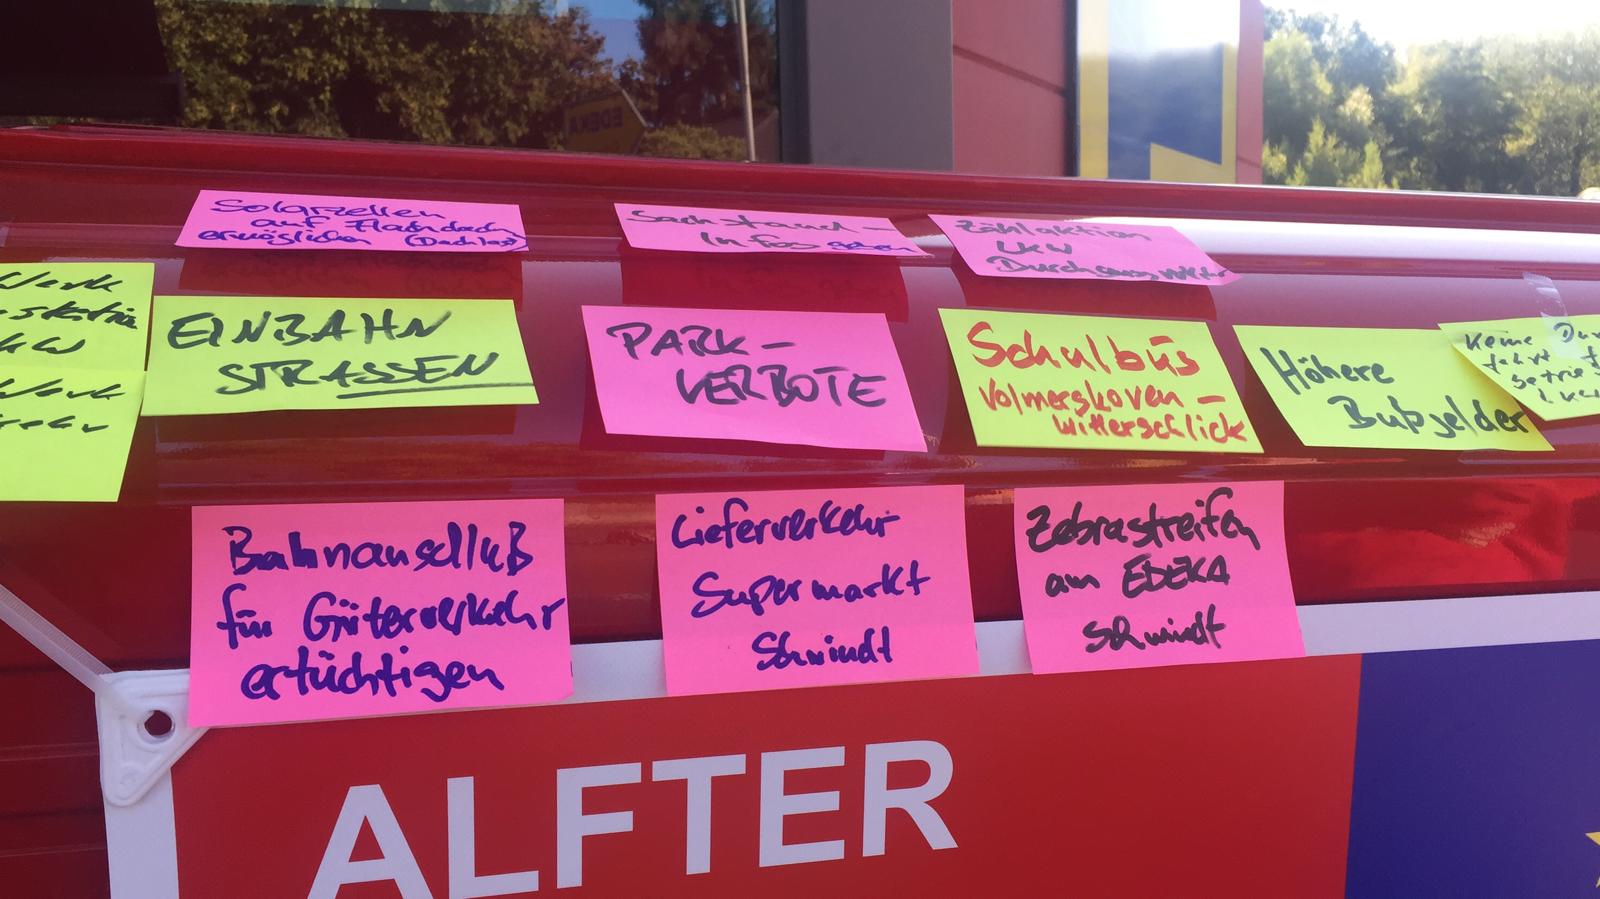 EDEKA
Solarzellen
auf Flachdach
ermöglichen (Dachlast)
Sachstand -
Infos geben
Zählaktion
LKW
Werk
EINBAHN
STRASSEN
PARK -
VERBOTE
Schulbus
Volmershoven -
Witterschlick
Höhere
Bußgelder
Keine
Werk
Bahnanschluß
für Güterverkehr
ertüchtigen
Lieferverkehr
Supermarkt
Schmidt
Zebrastreifen
am EDEKA
Schmidt
ALFTER